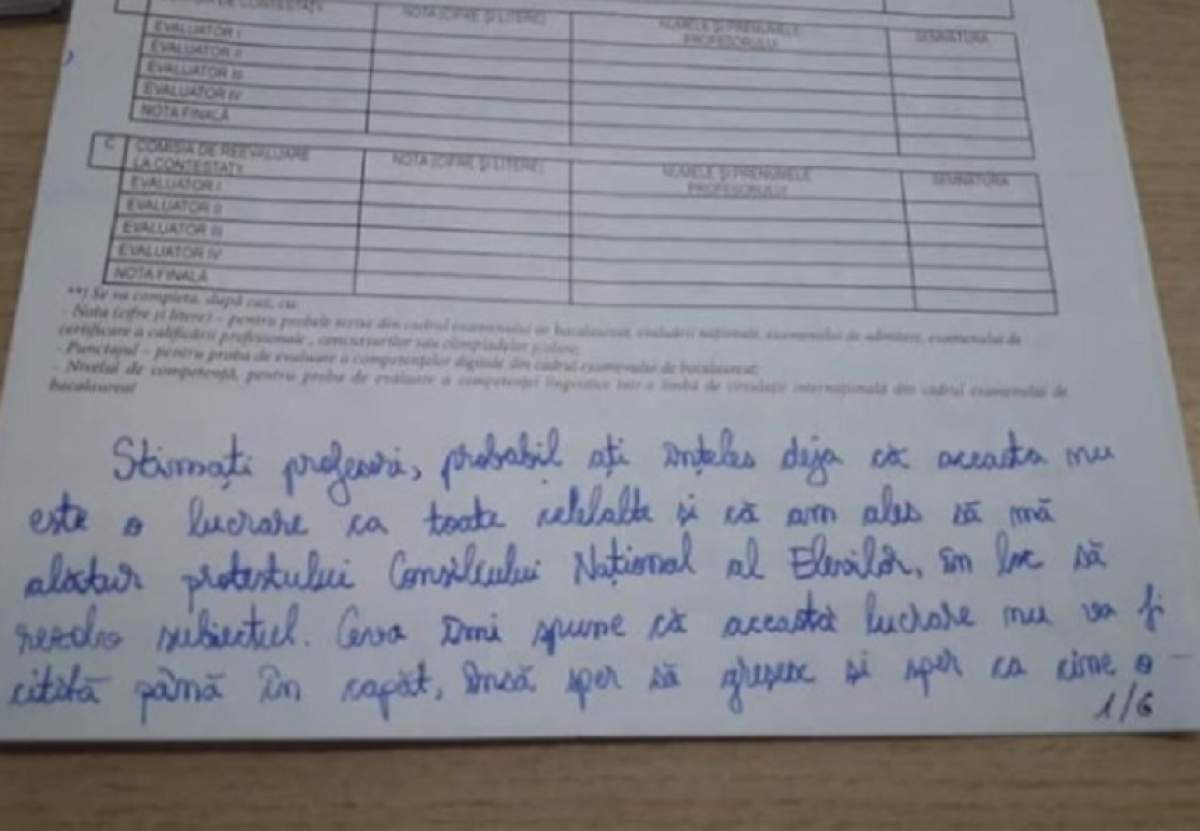 DE CONTESTAȚII NOTA (CIFRE ȘI LITERE) NUMELE ȘI PRENUMELE PROFESORULUI SEMNĂTURA
EVALUATOR I
EVALUATOR II
EVALUATOR III
EVALUATOR IV
NOTA FINALĂ
C COMISIA DE REEVALUARE LA CONTESTAȚII NOTA (CIFRE ȘI LITERE) NUMELE ȘI PRENUMELE PROFESORULUI SEMNĂTURA
EVALUATOR I
EVALUATOR II
EVALUATOR III
EVALUATOR IV
NOTA FINALĂ
**) Se va completa, după caz, cu:
- Nota (cifre și litere) – pentru probele scrise din cadrul examenului de bacalaureat, evaluării naționale, examenului de admitere, examenului de
certificare a calificării profesionale, concursurilor sau olimpiadelor școlare;
- Punctajul – pentru proba de evaluare a competențelor digitale din cadrul examenului de bacalaureat;
- Nivelul de competență, pentru proba de evaluare a competenței lingvistice într-o limbă de circulație internațională din cadrul examenului de
bacalaureat
Stimați profesori, probabil ați înteles deja că aceasta nu
este o lucrare ca toate celelalte și că am ales să mă
alătur protestului Consiliului Național al Elevilor, în loc să
rezolv subiectul. Ceva îmi spune că această lucrare nu va fi
citită până în capăt, însă sper să greșesc și sper ca cine o
1/6